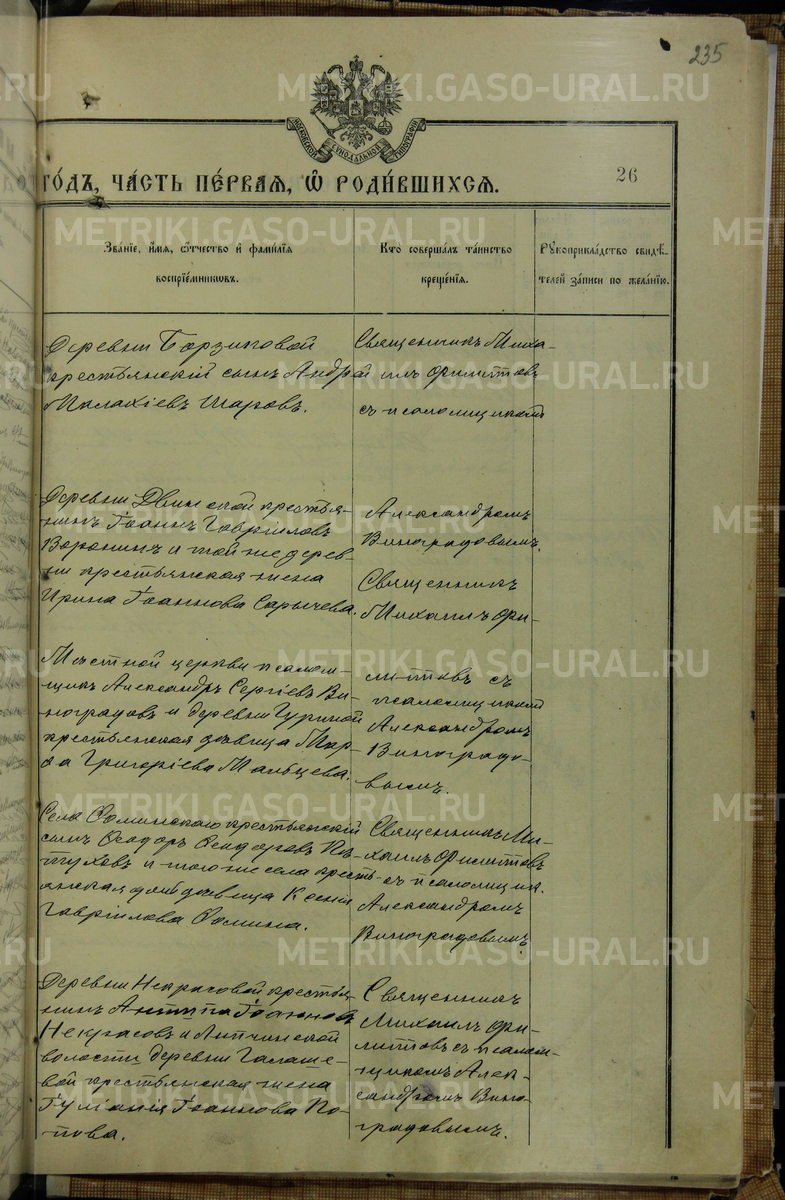 235
МОСКОВСКОЙ СѴНОДАЛЬНОЙ ТИПОГРАФІИ
ГО́ДЪ, ЧА́СТЬ ПЕ́РВАЯ, Ѡ҆ РОДИ́ВШИХСЯ.
26
Зва́нїе, и҆́мя, ѻ҆́тчество и҆ фами́лїя
воспрїе́мниковъ.
Кто соверша́лъ та́инство
креще́нїя.
Рꙋкоприкла́дство свидѣ́-
телей за́писи по жела́нїю.
Деревни Борзиковой
крестьянскій сынъ Андрей
Малахіевъ Шаровъ.
Священникъ Миха-
илъ Филитовъ
съ псаломщикомъ
Деревни Двинской крестья-
нинъ Іоаннъ Гавріиловъ
Воронинъ и той же дерев-
ни крестьянская жена
Ирина Іоаннова Сарычева.
Александромъ
Виноградовымъ.
Священникъ
Михаилъ Фи-
Мѣстной церкви псалом-
щикъ Александръ Сергіевъ Ви-
ноградовъ и деревни Гуриной
крестьянская дѣвица Мар-
ѳа Григоріева Мальцева.
литовъ съ
псаломщикомъ
Александромъ
Виноградо-
вымъ.
Села Фоминскаго крестьянскій
сынъ Ѳеодоръ Ѳеодоровъ
и того же села кресть-
янская дѣвица Ксенія
Гавріилова Фомина.
Священникъ Ми-
хаилъ Филитовъ
съ псаломщик.
Александромъ
Виноградовымъ.
Деревни Некрасовой крестья-
нинъ Антипа Іоанновъ
Некрасовъ и Липчинской
волости деревни Галаше-
вой крестьянская жена
Іуліанія Іоаннова По-
пова.
Священникъ
Михаилъ Фи-
литовъ съ псалом-
щикомъ Алек-
сандромъ Вино-
градовымъ.
METRIKI.GASO-URAL.RU